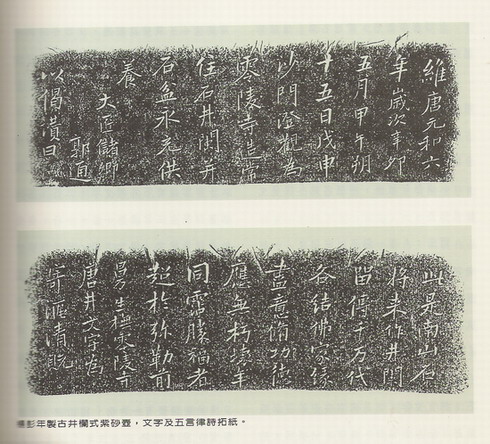 維唐元和六
年歲次辛卯
五月甲午朔
十五日戊申
沙門澄觀為
零陵寺造常
住石井闌并
石盆永充供
養
大匠儲卿
郭通
以偈讚曰
此是南山石
將來作井闌
留傳千万代
各結佛家緣
盡意脩功德
應無朽壞年
同霑勝福者
超於弥勒前
曼生橅零陵寺
唐井文字為
寄漚清玩
楊彭年製古井欄式紫砂壺，文字及五言律詩拓紙。